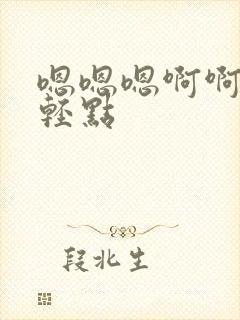 嗯嗯嗯啊啊
輕點
段北生